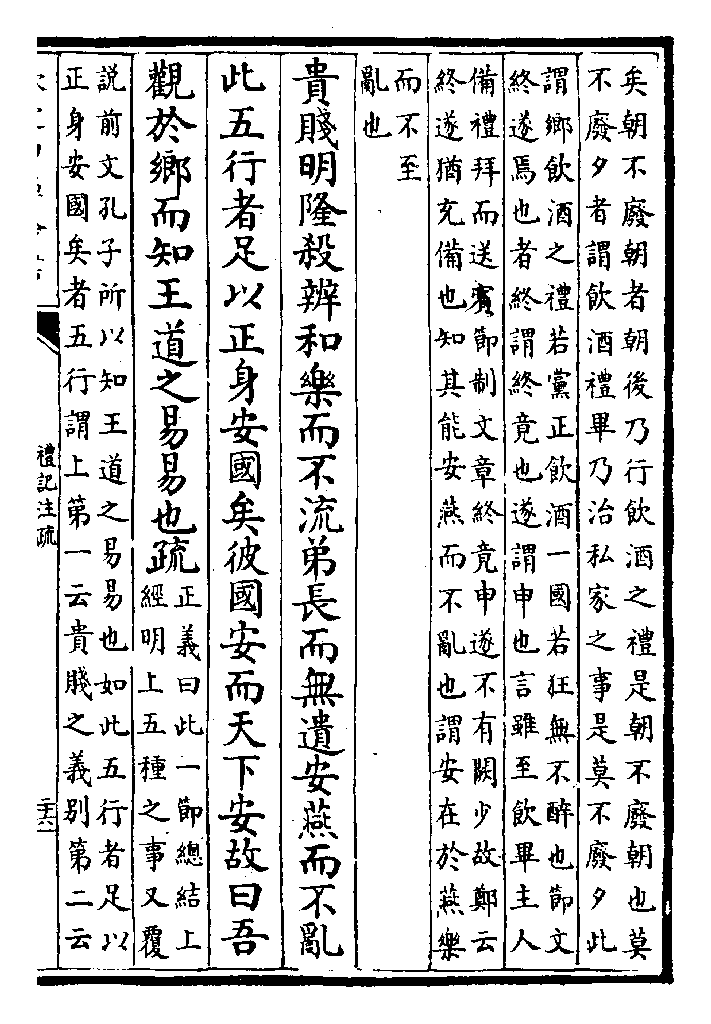 矣朝不廢朝者朝後乃行飲酒之禮是朝不廢朝也莫
不廢夕者謂飲酒禮畢乃治私家之事是莫不廢夕此
謂鄉飲酒之禮若黨正飲酒一國若狂無不醉也節文
終遂焉也者終謂終竟也遂謂申也言雖至飲畢主人
備禮拜而送賓節制文章終竟申遂不有闕少故鄭云
終遂猶充備也知其能安燕而不亂也謂安在於燕樂
而不至
亂也
貴賤明隆殺辨和樂而不流弟長而無遺安燕而不亂
此五行者足以正身安國矣彼國安而天下安故曰吾
觀於鄉而知王道之易易也疏
正義曰此一節總結上
經明上五種之事又覆
說前文孔子所以知王道之易易也如此五行者足以
正身安國矣者五行謂上第一云貴賤之義別第二云
禮記注疏